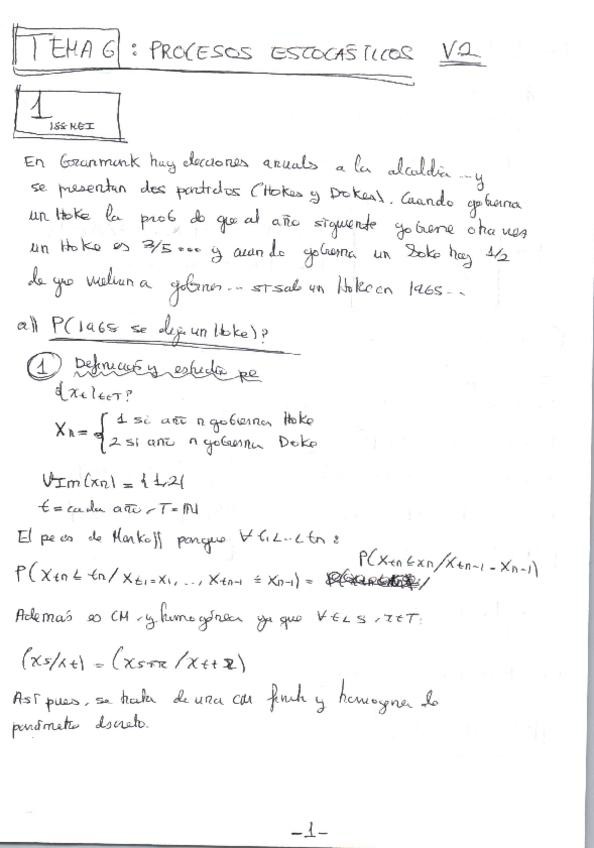 TEMA 6 : PROCESOS ESTOCÁSTICOS V2
1
En Granmunk hay elecciones anuals a la alcaldia ... y
se presentan dos partidos (Hokes y Dokes). Cuando gobierna
un Hoke la prob de que al año siguiente gobierne otra vez
un Hoke es 3/5 .... y cuando gobierna un Doke hay 1/2
de que vuelvan a gobernar... si sale un Hoke en 1965...
a)) P(1965 se elija un Hoke)?
1 Definición y estudio pe
{xt}t∈T?
Xn = { 1 si año n gobierna Hoke
2 si año n gobierna Doke
Im(xn) = {1,2}
t = cada año, T = ℕ
El pe es de Markoff porque ∀ t1<..<tn :
P(Xtn ≤ xn / Xtn-1 = Xn-1)
P(Xtn ≤ tn / Xt1=x1, ..., Xtn-1 = Xn-1) =
Además es CM y homogénea ya que ∀ t<s, r∈T:
(Xs/Xt) = (Xs+r / Xt+r)
Así pues, se trata de una CM finita y homogenea de
parámetro discreto.
-1-